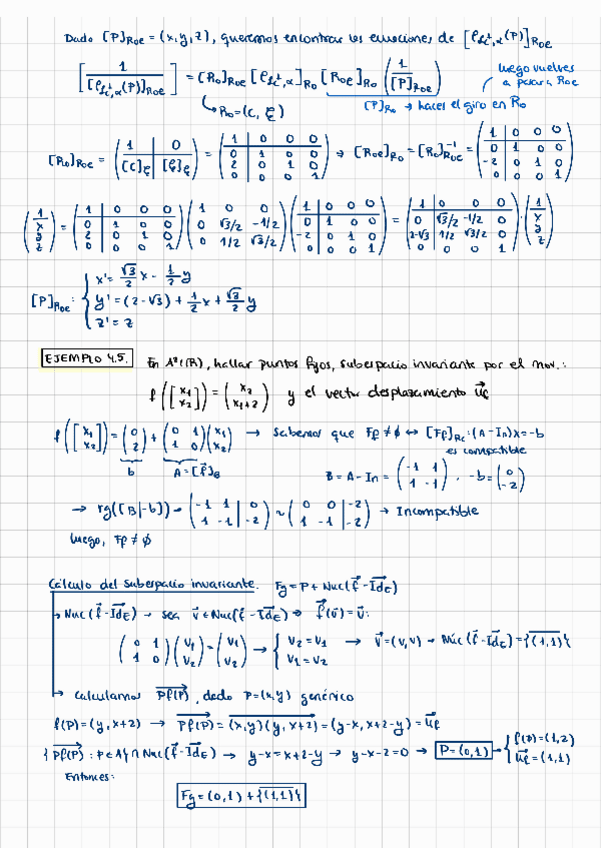 Dado [P]Roe = (x,y,z), queremos encontrar las ecuaciones de [ρℓc⊥,α(P)]Roe
[1 / [ρℓc⊥,α(P)]Roe] = [Ro]Roe [ρℓc⊥,α]Ro [Roe]Ro (1 / [P]Roe)
luego vuelves a pasar a Roe
↳ Ro = (C, ξ)
[P]Ro → haces el giro en Ro
[Ro]Roe = (1 | 0 / [C]ξ | [ξ]ξ) = (1 0 0 0 / 0 1 0 0 / 2 0 1 0 / 0 0 0 1) → [Roe]Ro = [Ro]Roe⁻¹ = (1 0 0 0 / 0 1 0 0 / -2 0 1 0 / 0 0 0 1)
(1 / x / y / z) = (1 0 0 0 / 0 1 0 0 / 2 0 1 0 / 0 0 0 1) (1 0 0 / 0 √3/2 -1/2 / 0 1/2 √3/2) (1 0 0 0 / 0 1 0 0 / -2 0 1 0 / 0 0 0 1) = (1 0 0 0 / 0 √3/2 -1/2 0 / 2-√3 1/2 √3/2 0 / 0 0 0 1) · (1 / x / y / z)
[P]Roe : { x' = √3/2 x - 1/2 y
y' = (2-√3) + 1/2 x + √3/2 y
z' = z
EJEMPLO 4.5. En A²(R), hallar puntos fijos, subespacio invariante por el mov.:
f([x₁ / x₂]) = (x₂ / x₁+2) y el vector desplazamiento u⃗f
f([x₁ / x₂]) = (0 / 2) + (0 1 / 1 0)(x₁ / x₂) → Sabemos que Ff ≠ ∅ ↔ [Ff]Rc : (A-In)x = -b
es compatible
b A = [f⃗]B B = A - In = (-1 1 / 1 -1) , -b = (0 / -2)
→ rg([B|-b]) → (-1 1 | 0 / 1 -1 | -2) ~ (0 0 | -2 / 1 -1 | -2) → Incompatible
luego, Ff ≠ ∅
Cálculo del subespacio invariante. Fg = P + Nuc(f⃗ - Id⃗E)
↳ Nuc(f⃗ - Id⃗E) → sea v⃗ ∈ Nuc(f⃗ - Id⃗E) → f⃗(v⃗) = v⃗:
(0 1 / 1 0)(v₁ / v₂) = (v₁ / v₂) → { v₂ = v₁ / v₁ = v₂ → v⃗ = (v,v) → Nuc(f⃗ - Id⃗E) = {(1,1)}
↳ Calculamos Pf(P), dado P = (x,y) genérico
f(P) = (y, x+2) → Pf(P) = (x,y)(y,x+2) = (y-x, x+2-y) = u⃗f
{Pf(P) : P ∈ A} ∩ Nuc(f⃗ - Id⃗E) → y-x = x+2-y → y-x-2 = 0 → P = (0,1) → { f(P) = (1,2) / u⃗f = (1,1)
Entonces:
Fg = (0,1) + {(1,1)}